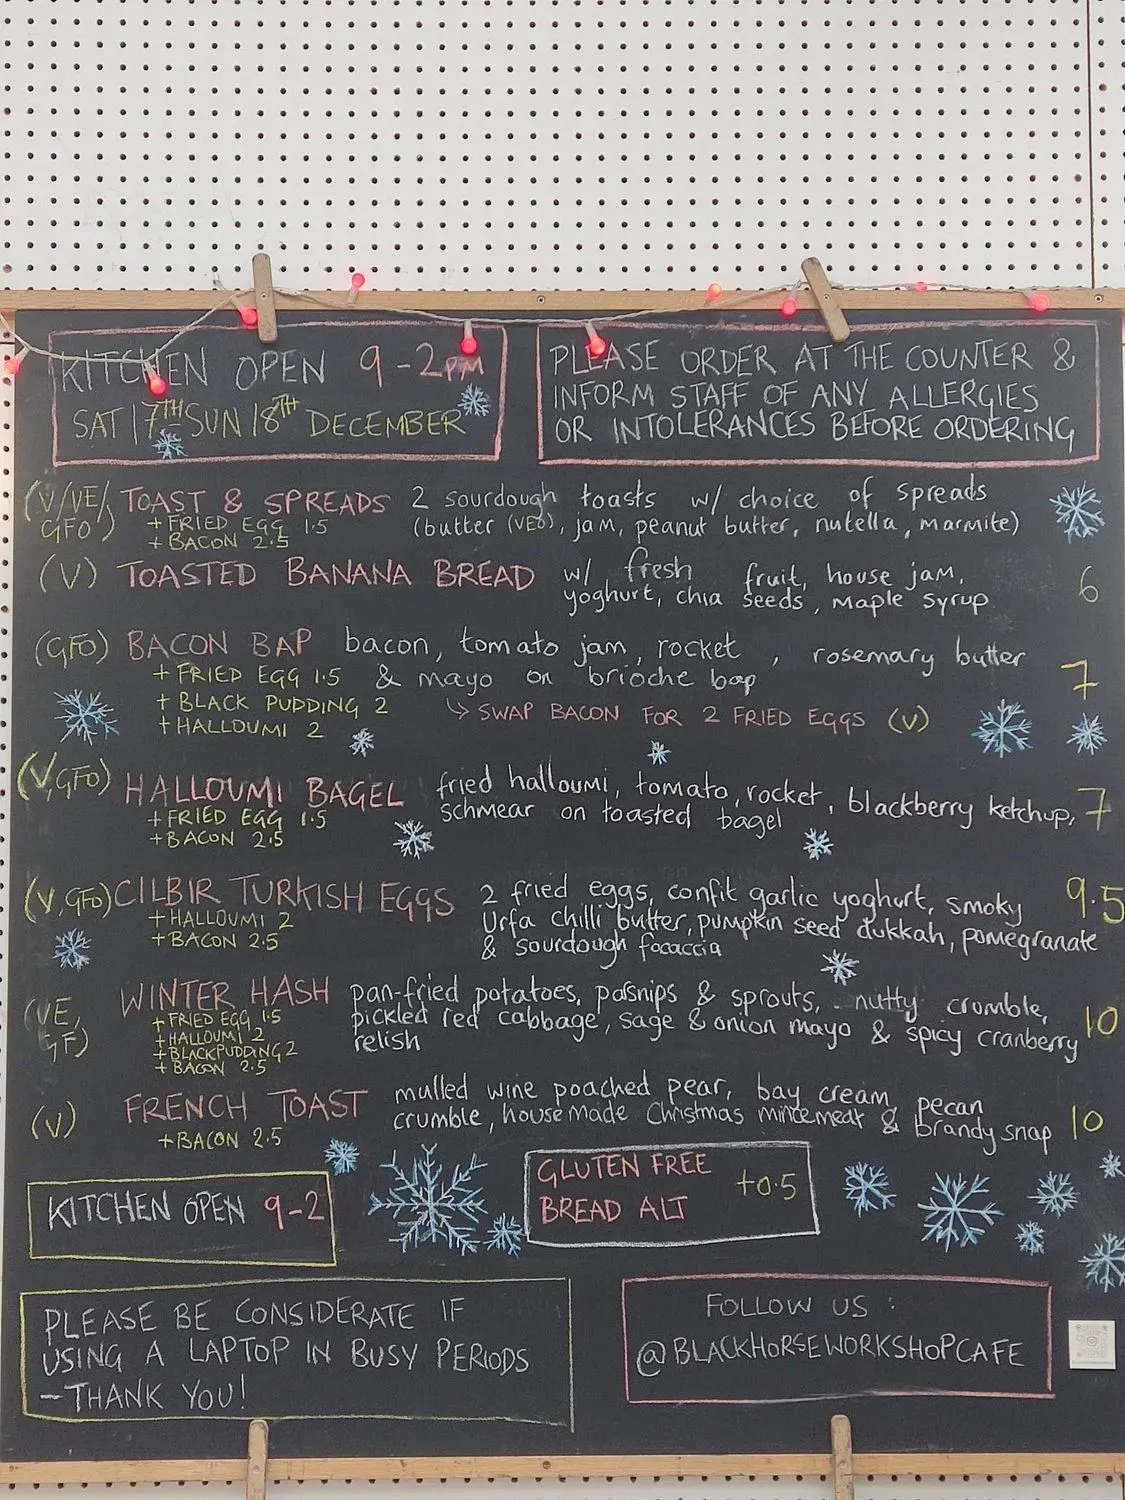 KITCHEN OPEN 9-2PM
SAT 17TH-SUN 18TH DECEMBER
PLEASE ORDER AT THE COUNTER &
INFORM STAFF OF ANY ALLERGIES
OR INTOLERANCES BEFORE ORDERING
(V/VE/ TOAST & SPREADS 2 sourdough toasts w/ choice of spreads
GFO) + FRIED EGG 1.5 (butter (VEO), jam, peanut butter, nutella, marmite)
+ BACON 2.5
(V) TOASTED BANANA BREAD w/ fresh fruit, house jam, 6
yoghurt, chia seeds, maple syrup
(GFO) BACON BAP bacon, tomato jam, rocket, rosemary butter 7
+ FRIED EGG 1.5 & mayo on brioche bap
+ BLACK PUDDING 2 ↳ SWAP BACON FOR 2 FRIED EGGS (V)
+ HALLOUMI 2
(V,GFO) HALLOUMI BAGEL fried halloumi, tomato, rocket, blackberry ketchup, 7
+ FRIED EGG 1.5 schmear on toasted bagel
+ BACON 2.5
(V,GFO) CILBIR TURKISH EGGS 2 fried eggs, confit garlic yoghurt, smoky 9.5
+ HALLOUMI 2 Urfa chilli butter, pumpkin seed dukkah, pomegranate
+ BACON 2.5 & sourdough focaccia
(VE, WINTER HASH pan-fried potatoes, parsnips & sprouts, nutty crumble, 10
GF) + FRIED EGG 1.5 pickled red cabbage, sage & onion mayo & spicy cranberry
+ HALLOUMI 2 relish
+ BLACK PUDDING 2
+ BACON 2.5
(V) FRENCH TOAST mulled wine poached pear, bay cream, pecan 10
+ BACON 2.5 crumble, housemade Christmas mincemeat & brandy snap
KITCHEN OPEN 9-2
GLUTEN FREE +0.5
BREAD ALT
PLEASE BE CONSIDERATE IF
USING A LAPTOP IN BUSY PERIODS
- THANK YOU!
FOLLOW US :
@BLACKHORSEWORKSHOPCAFE